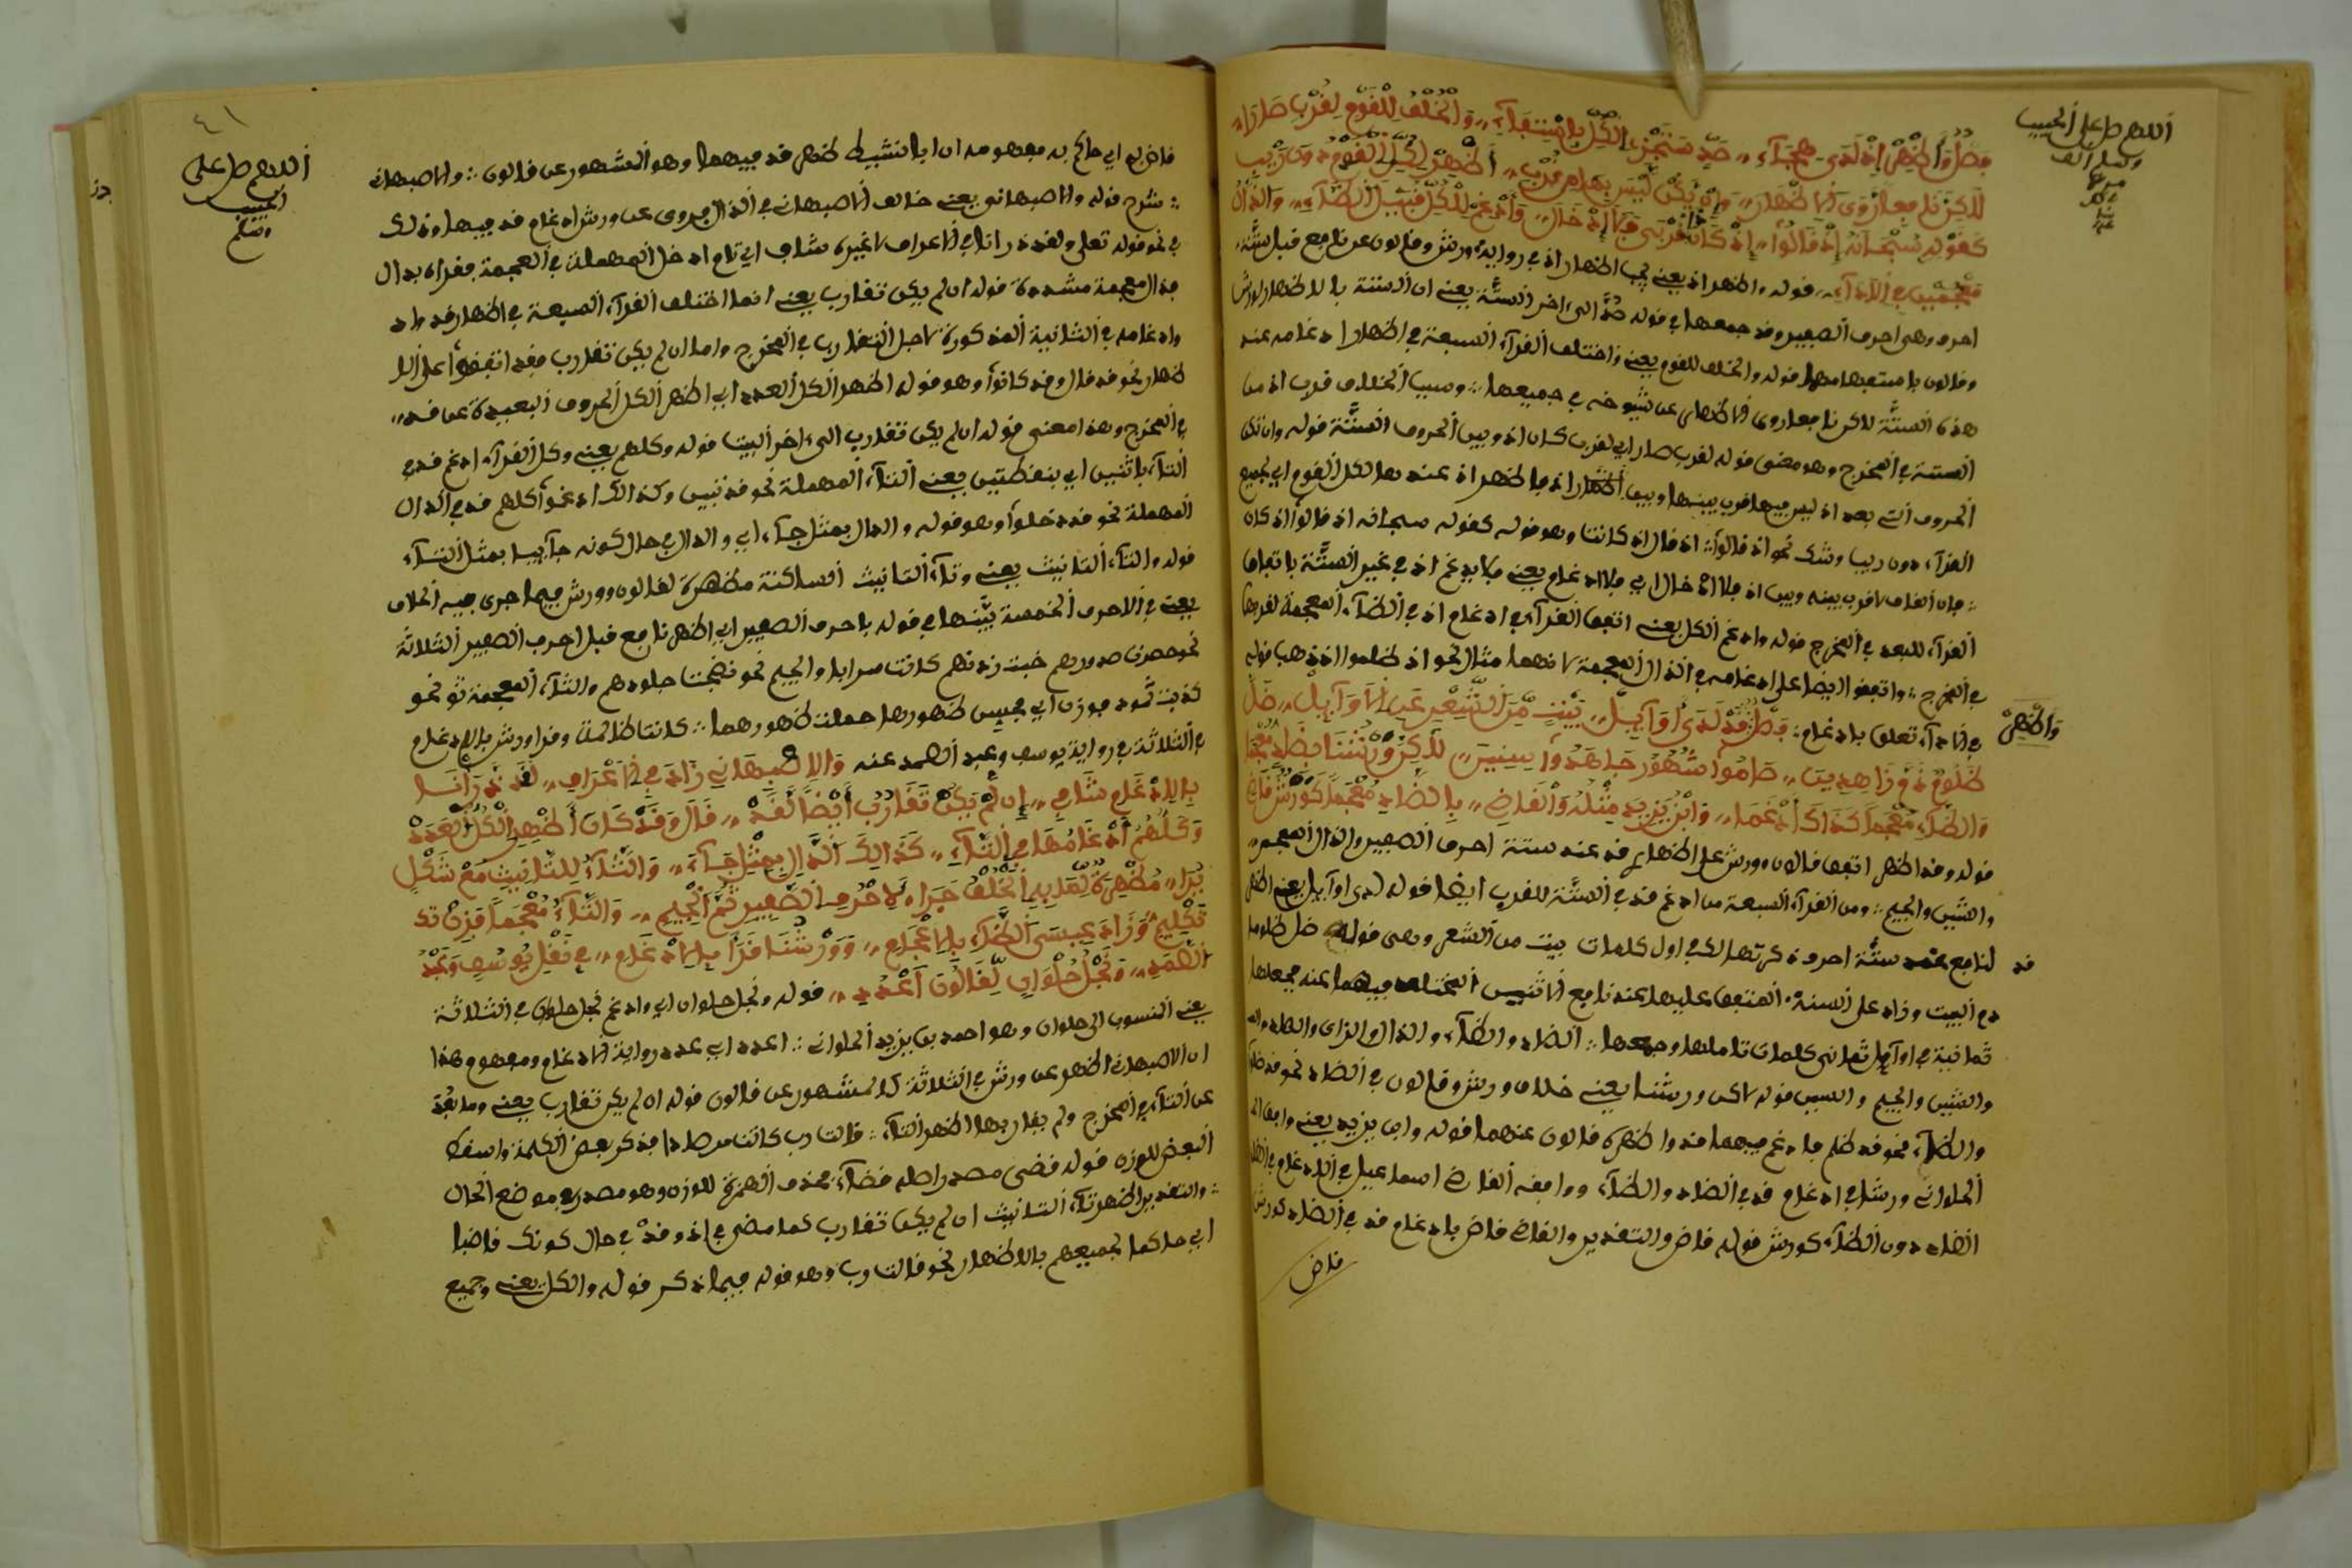 اللهم صل على الحبيب
فصل وأظهر إذ لدى هجاء صد ستجز الكل باستيفاء والخلف للقوم لقرب صارا
لاكن نافعا روى الاظهار وإن يكن ليس بهاء قرب أظهر لكل القوم دون ريب
كقوله سبحانه إذ قالوا إذ كان قربى فبإذ خال وأدغم للكل قبيل الظاء والذال
معجمين في الأداء قوله واظهر اذ يعني يجب اظهار اذ في رواية ورش وقالون عن نافع قبل ستة
احرف وهي احرف الصفير وقد جمعها في قوله صد الى اخر الستة يعني ان الستة بالاظهار لورش
وقالون باستيعابها قوله والخلف للقوم يعني واختلف القراء السبعة في اظهار اذ وادغامه عند
هذه الستة لاكن نافعا روى الاظهار عن شيوخه في جميعها وسبب الخلاف قرب اذ من
الستة في المخرج وهو معنى قوله لقرب صار اي لقرب كان اذ وبين الحروف الستة قوله وان تكن
الحروف التي بعد اذ ليس فيها قرب بينها وبين اذ فاظهر اذ عندها لكل القوم اي لجميع
القراء دون ريب وشك نحو اذ قالوا اذ قال اذ كانت وهو قوله كقوله سبحانه اذ قالوا اذ كان
فان القاف لا قرب بينه وبين اذ فلا اذ خال اي فلا ادغام يعني فلا يدغم اذ في غير الستة باتفاق
القراء للبعد في المخرج قوله وادغم الكل يعني اتفق القراء في ادغام اذ في الظاء المعجمة لقربها
في المخرج واتفقوا ايضا على ادغامه في الذال المعجمة لانهما مثلان نحو اذ ظلموا اذ ذهب قوله
في الاداء تعلق بادغام فصل وقد لدى أوائل بيت من الشعر عن الأوائل ضل
وأظهر
ظلوم ذو زاهدين صاموا شهور جاهدوا سنين لاكن ورشنا بضاد معجما
والظاء معجما كذاك أدغما وابن يزيد مثله والقاض بالضاد معجما كورش قاض
قوله وقد اظهر اتفق قالون وورش على اظهار قد عند ستة احرف الصفير والذال المعجم
والشين والجيم ومن القراء السبعة من ادغم قد في الستة للقرب ايضا قوله لدى اوائل يعني اظهر
قد لنافع عند ستة احرف ذكرتها لك في اول كلمات بيت من الشعر وهي قوله ضل ظلوما
ثمانية في اوائل ثماني كلمات تاملها وجمعها الضاد والظاء والذال والزاي والصاد
والشين والجيم والسين قوله لاكن ورشنا يعني خلاف ورش وقالون في الضاد نحو قد ضل
والظاء نحو قد ظلم فادغم فيهما قد واظهره قالون عندهما قوله وابن يزيد يعني وافق
الحلواني ورشا في ادغام قد في الضاد والظاء ووافقه القاض اسماعيل في الادغام في الضاد
الضاد دون الظاء كورش قوله قاض والتقدير والقاض قاض بادغام قد في الضاد كورش
قاض
٤١
اللهم صل على
الحبيب
وسلم
قاض به اي حاكم به مفهومه ان ابا نشيط اظهر قد فيهما وهو المشهور عن قالون والاصبهاني
شرح قوله والاصبهاني يعني خالف الاصبهاني في الذال فروى عن ورش ادغام قد فيها وذلك
في نحو قوله تعلى ولقد ذرانا في الاعراف لا غيره شاف اي تام ادخل المهملة في المعجمة فقراه بذال
بذال معجمة مشددة قوله ان لم يكن تقارب يعني انما اختلف القراء السبعة في اظهار قد واذ
وادغامه في الثمانية المذكورة لاجل التقارب في المخرج واما ان لم يكن تقارب فقد اتفقوا على الا
ظهار نحو قد قال وقد كانوا وهو قوله اظهر الكل العدد اي اظهر الكل الحروف البعيدة عن قد
في المخرج وهذا معنى قوله ان لم يكن تقارب الى اخر البيت قوله وكلهم يعني وكل القراء ادغم قد في
التاء باثنين اي بنقطتين يعني التاء المهملة نحو قد تبين وكذالك ادغموا كلهم قد في الدال
المهملة نحو قد دخلوا وهو قوله والدال بمثل جاء اي والدال في حال كونه جائيا بمثل التاء
قوله والتاء التانيث يعني وتاء التانيث الساكنة مظهرة لقالون وورش فيما جرى فيه الخلاف
يعني في الاحرف الخمسة بينها في قوله باحرف الصفير اي اظهر نافع قبل احرف الصفير الثلاثة
نحو حصرت صدورهم خبت زدنهم كانت سرابا والجيم نحو نضجت جلودهم والثاء المعجمة نحو
كذبت ثمود فوزن اي عجيس ظهورها حملت ظهورهما كانت ظالمة وقرا ورش بالادغام
في الثلاثة في رواية يوسف وعبد الصمد عنه والاصبهاني زاد في الأعراف لقد ذرأنا
بالادغام شاف إن لم يكن تقارب أيضا لقد قال وقد كان أظهر الكل العدد
وكلهم أدغامها في التاء كذالك الدال بمثل جاء والتاء للتانيث مع شكل
يرا مظهرة لقاليه الخلف جرا لاحرف الصفير ثم الجيم والثاء معجما فزن
تكليم وزاد عيسى الظاء بالاعجام وورشنا قرأ بالادغام في نقل يوسف وعبد
الصمد ونجل حلوان لقالون اعدد قوله ونجل حلوان اي وادغم نجل حلوان في الثلاثة
يعني المنسوب الى حلوان وهو احمد بن يزيد الحلواني اعدد اي عدد رواية الادغام ومفهوم هذا
ان الاصبهاني اظهر عن ورش في الثلاثة كالمشهور عن قالون قوله ان لم يكن تقارب يعني وما بعد
عن التاء في المخرج ولم يقاربها اظهر التاء قالت رب كانت مرصادا فذكر بعض الكلمة واسقط
البعض للوزن قوله قضى مصدر اصله قضاء فحذف الهمزة للوزن وهو مصدر في موضع الحال
والتقدير اظهرت تاء التانيث ان لم يكن تقارب كما مضى في اذ وقد في حال كونك قاضيا
اي حاكما لجميعهم بالاظهار نحو قالت رب وهو قوله فيما ذكر قوله والكل يعني وجميع